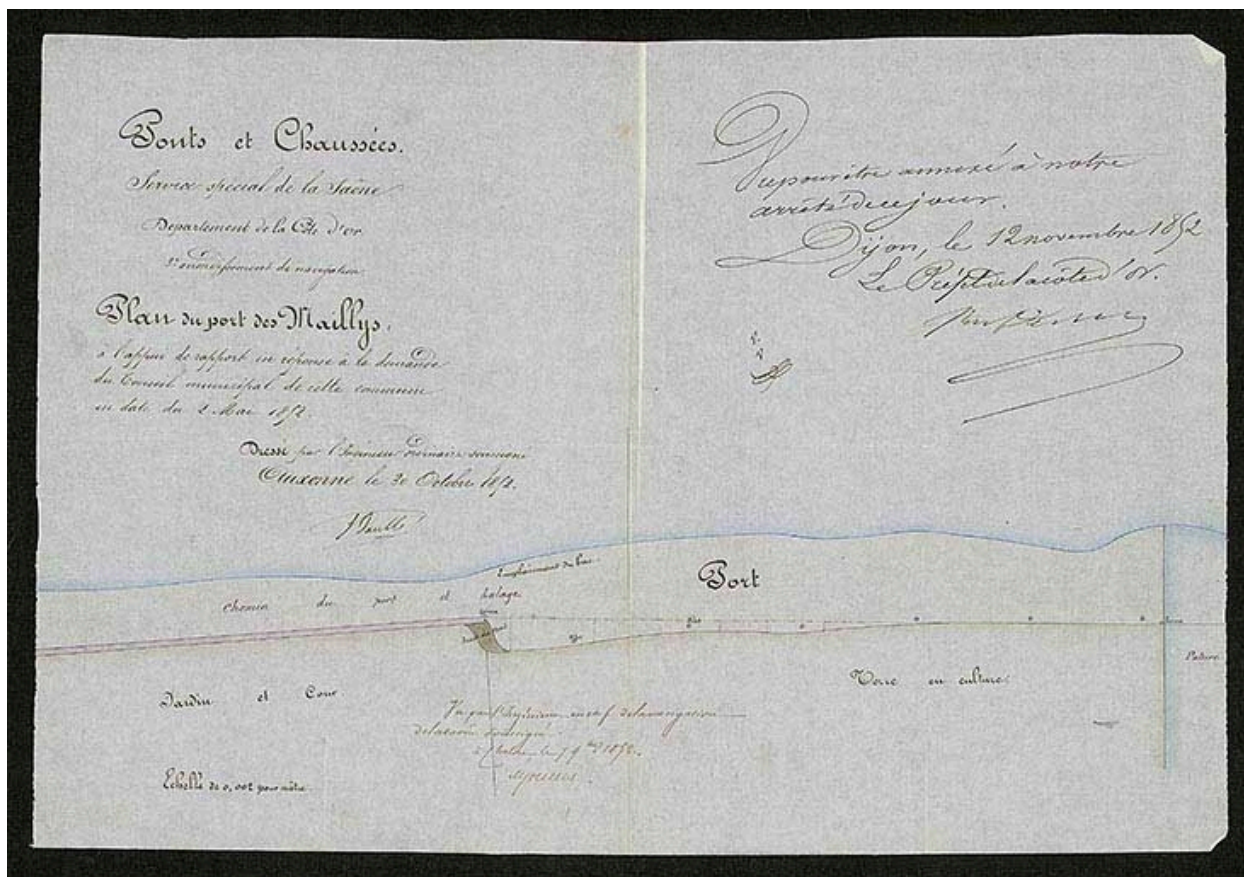 Ponts et Chaussées.
Service spécial de la Saône
Département de la Côte d'or
arrondissement de navigation
Plan du port des Maillys.
à l'appui de rapport en réponse à la demande
du Conseil municipal de cette commune
en date du 2 Mai 1852.
Dressé par l'Ingénieur ordinaire soussigné
Auxonne le 30 Octobre 1852.
Vu pour être annexé à notre
arrêté de ce jour.
Dijon, le 12 novembre 1852
Le Préfet de la côte d'or.
Emplacement du bac
Port
Chemin du port et halage
Jardin et Cour
Terre en culture
Pature
Vu par l'Ingénieur en chef de la navigation
de la Saône soussigné
à Chalon, le 9bre 1852.
Echelle de 0,002 pour mètre